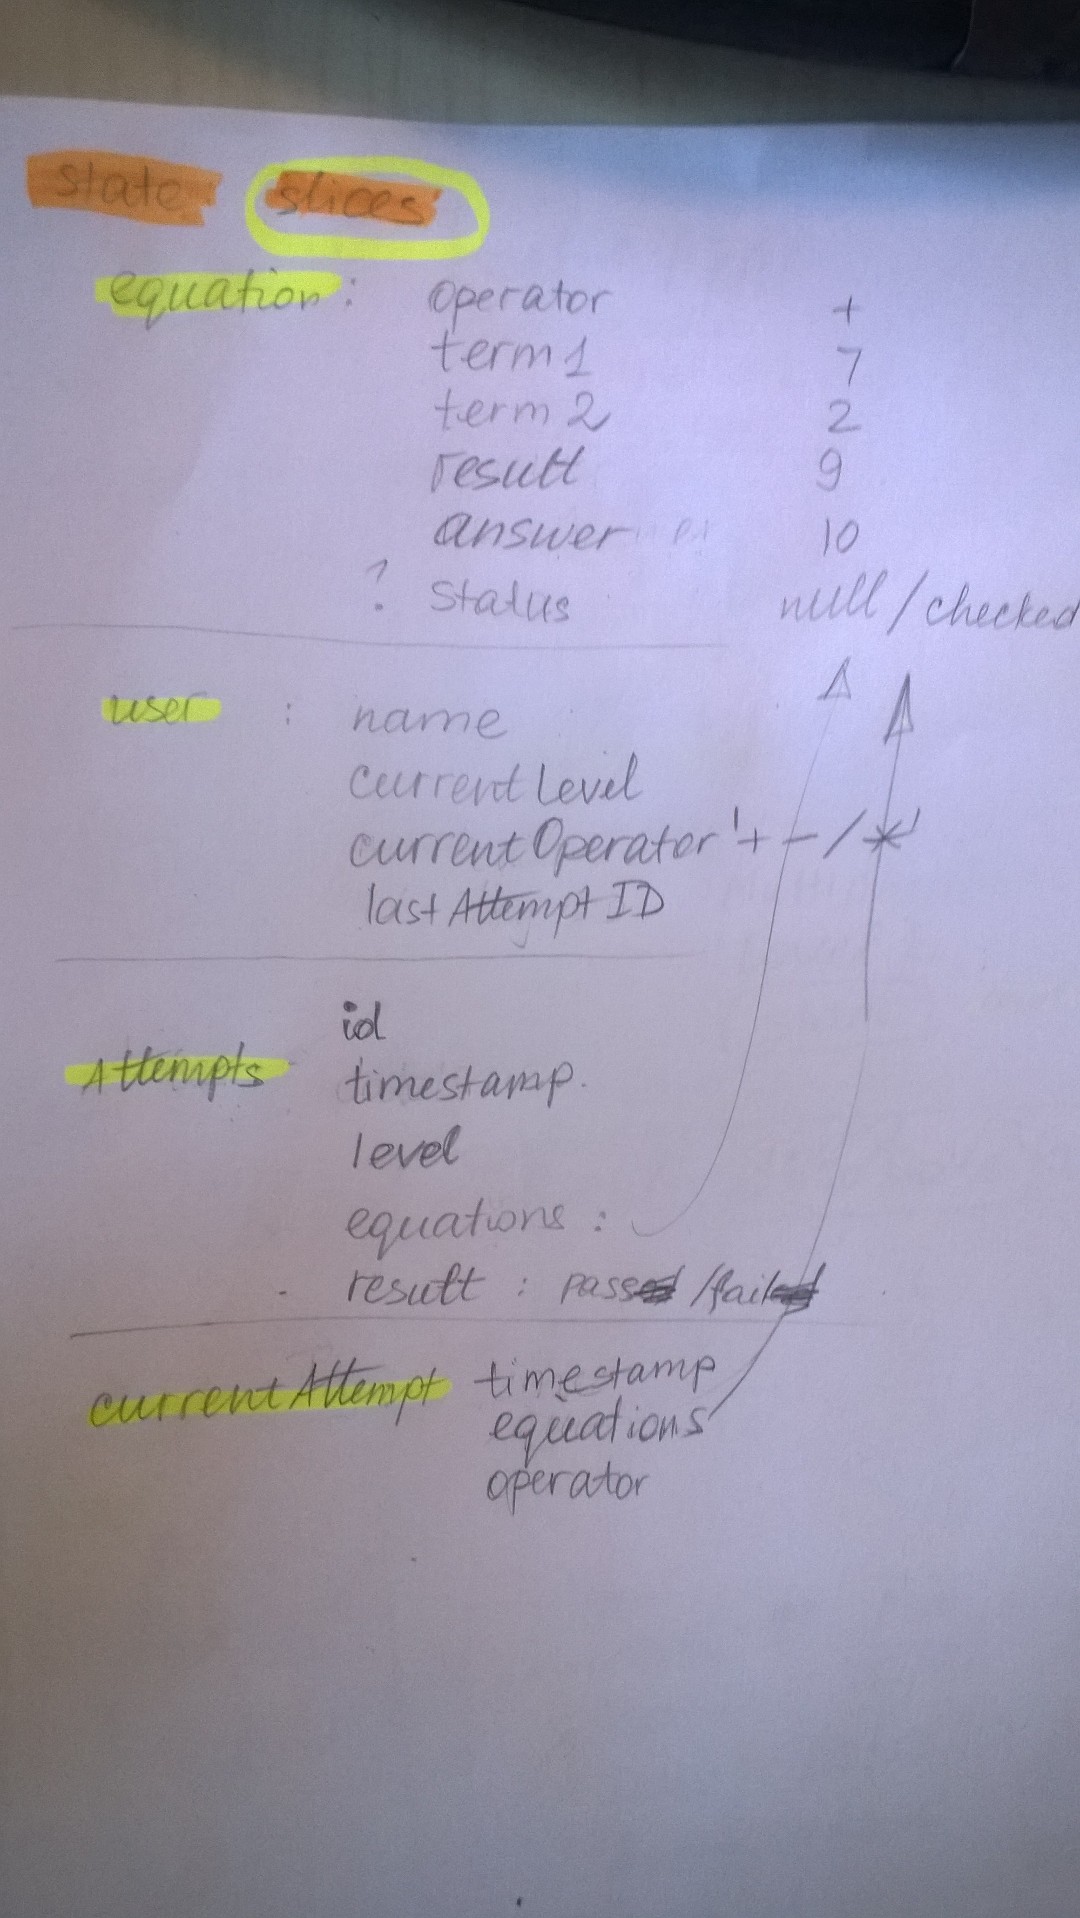 state slices
equation : operator +
term 1 7
term 2 2
result 9
answer 10
? status null / checked
user : name
currentLevel
currentOperator '+ - / *'
lastAttemptID
Attempts id
timestamp.
level
equations :
result : pass / fail
currentAttempt timestamp
equations
operator